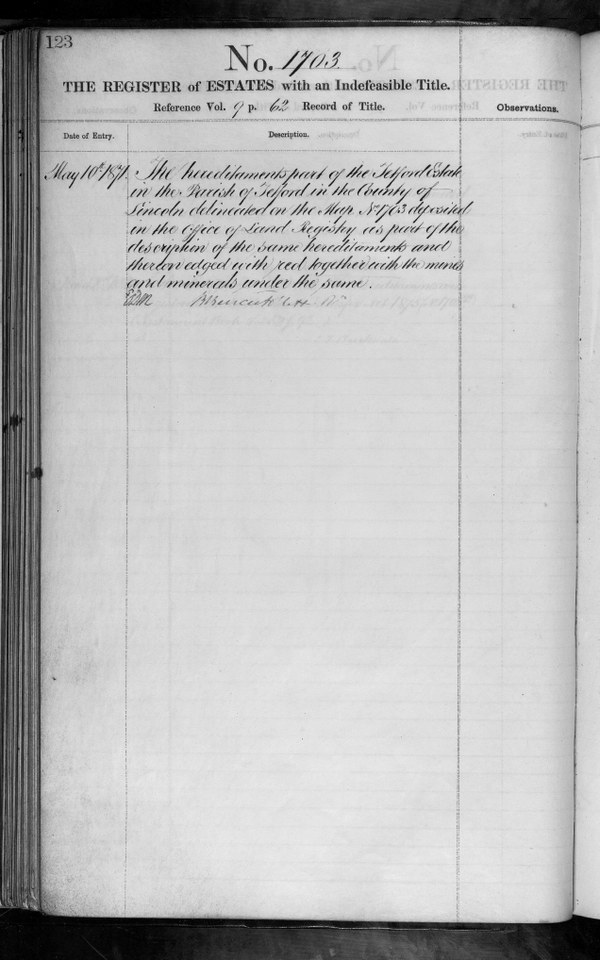 123
No. 1703
THE REGISTER of ESTATES with an Indefeasible Title.
Reference Vol. 9 p. 62 Record of Title.
Observations.
Date of Entry.
Description.
May 10th 1871. The hereditaments part of the Telford Estate
in the Parish of Telford in the County of
Lincoln delineated on the Map No 1703 deposited
in the office of Land Registry as part of the
description of the same hereditaments and
thereon edged with red together with the mines
and minerals under the same.